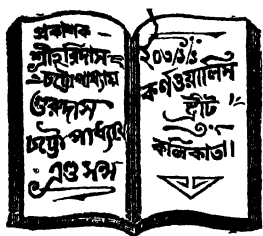 প্রকাশক
শ্রীহরিদাস
চট্টোপাধ্যায়
গুরুদাস
চট্টোপাধ্যায়
এণ্ড সন্স
২০৩/১/১
কর্নওয়ালিস
ষ্ট্রীট
কলিকাতা।